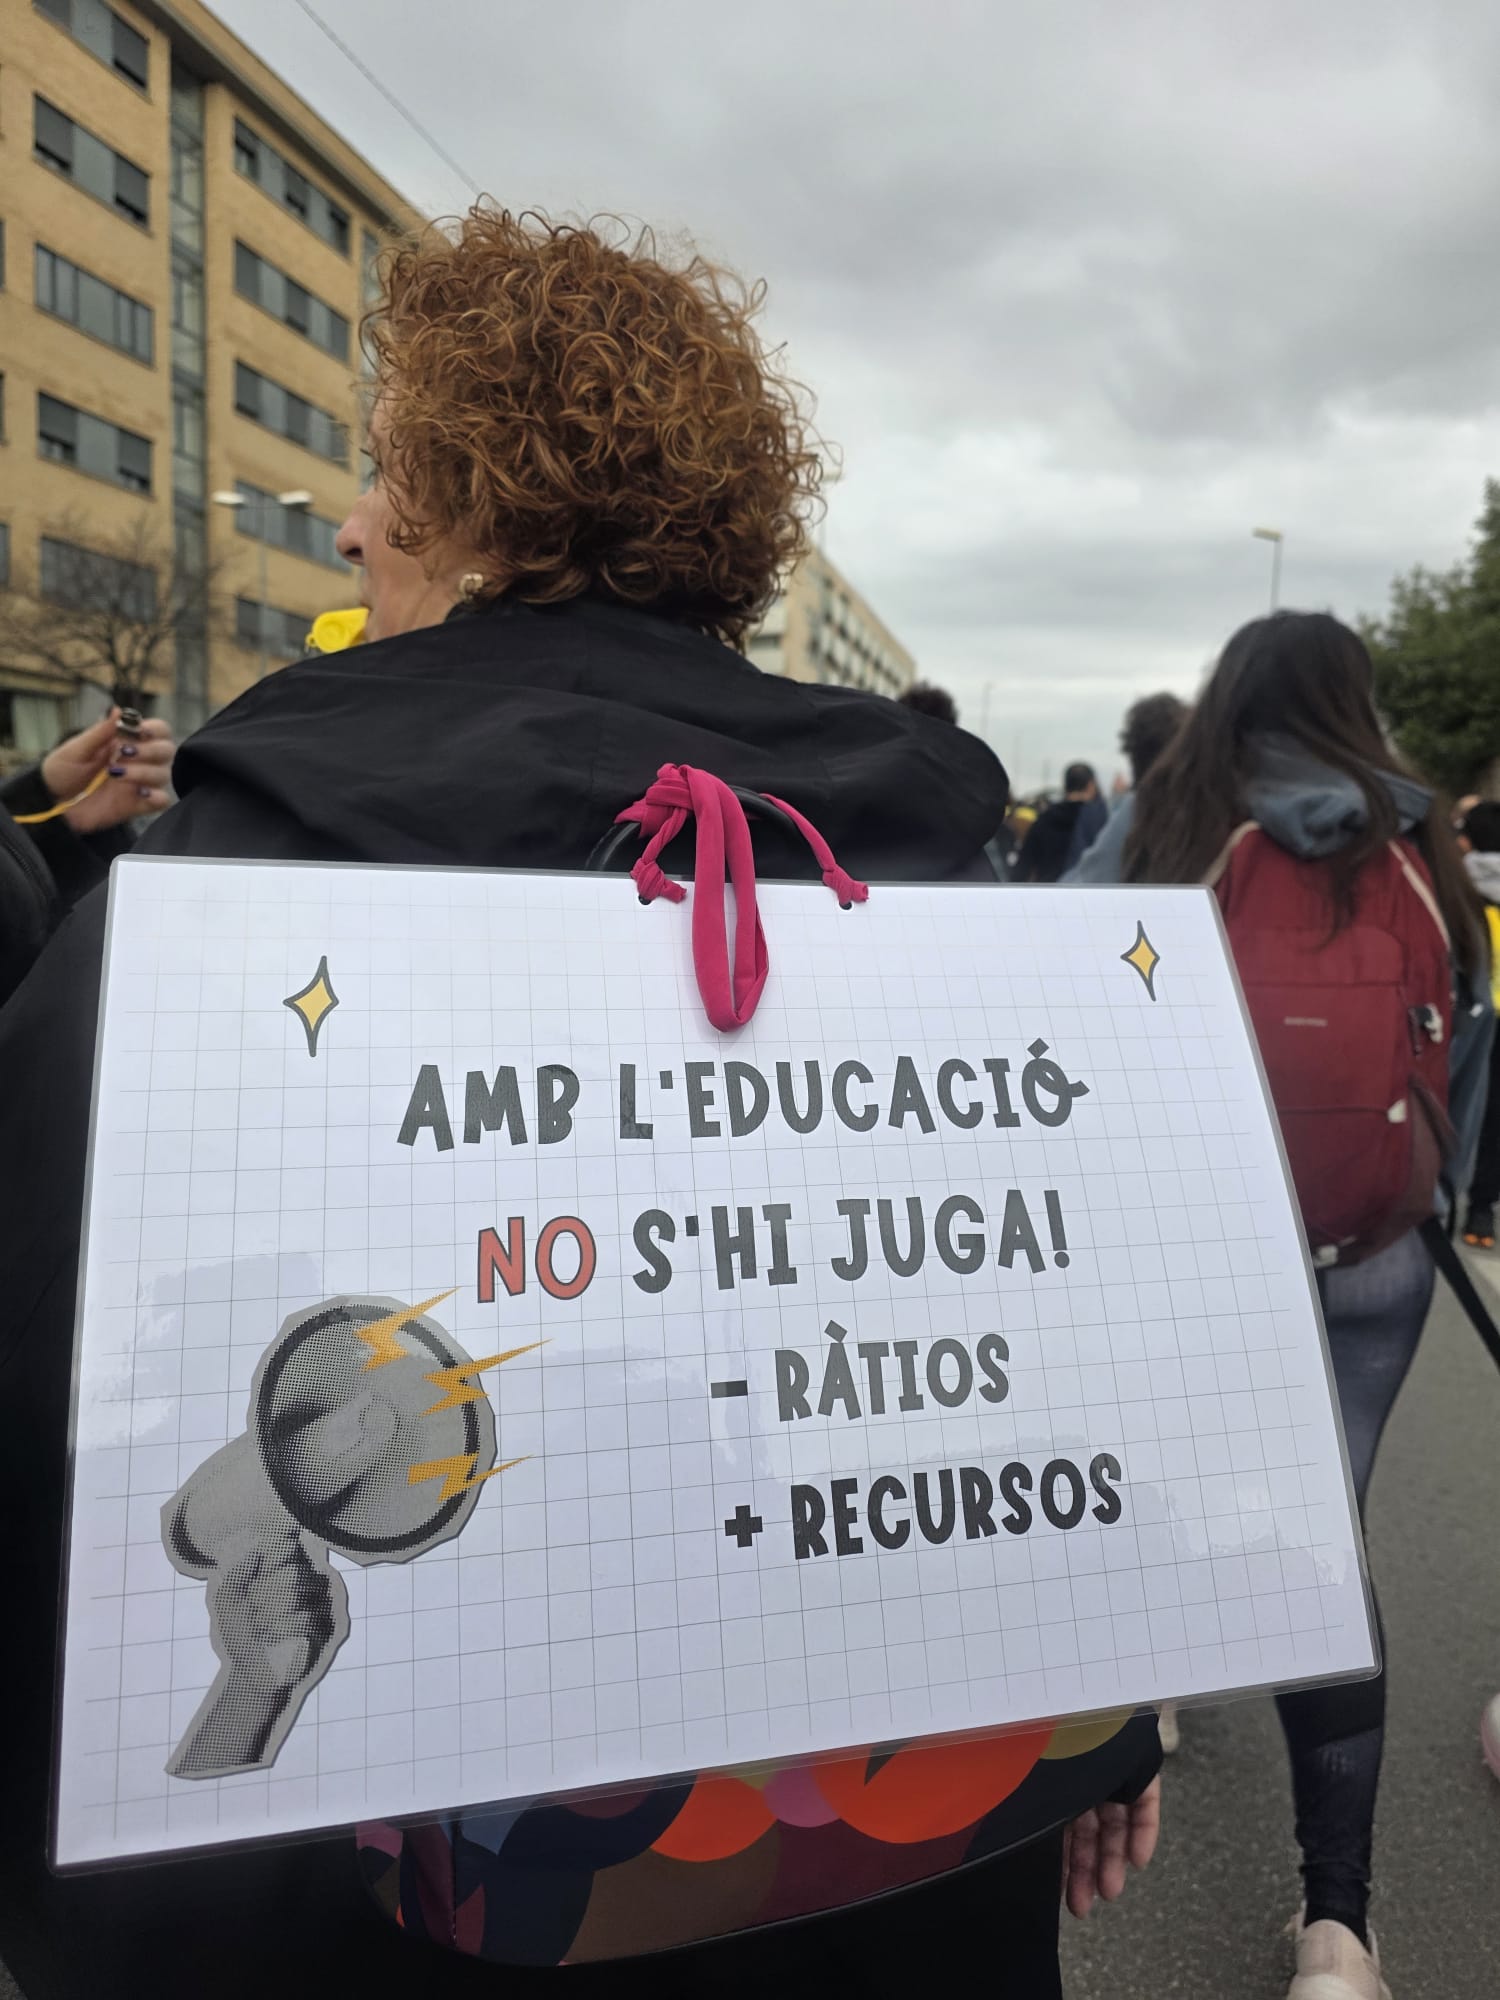 AMB L'EDUCACIÓ
NO S'HI JUGA!
- RÀTIOS
+ RECURSOS